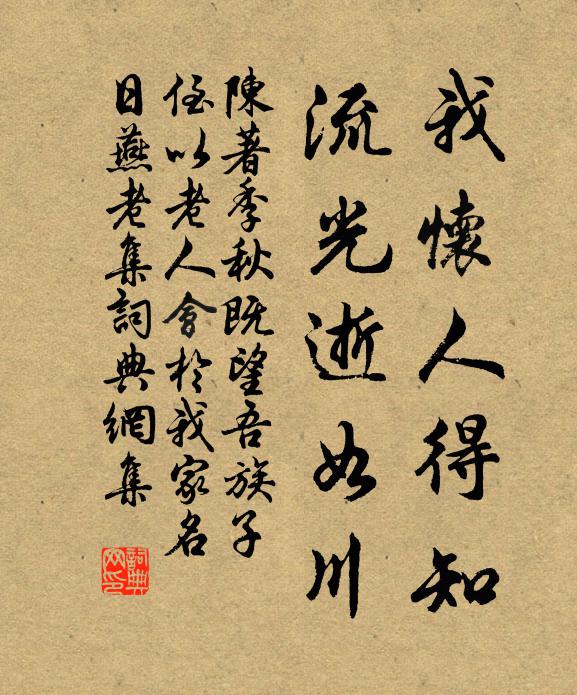 我懷人得知
流光逝如川
陳著季秋既望吾族子
侄以老人會於我家名
日燕老集詞典網集
詞典网印